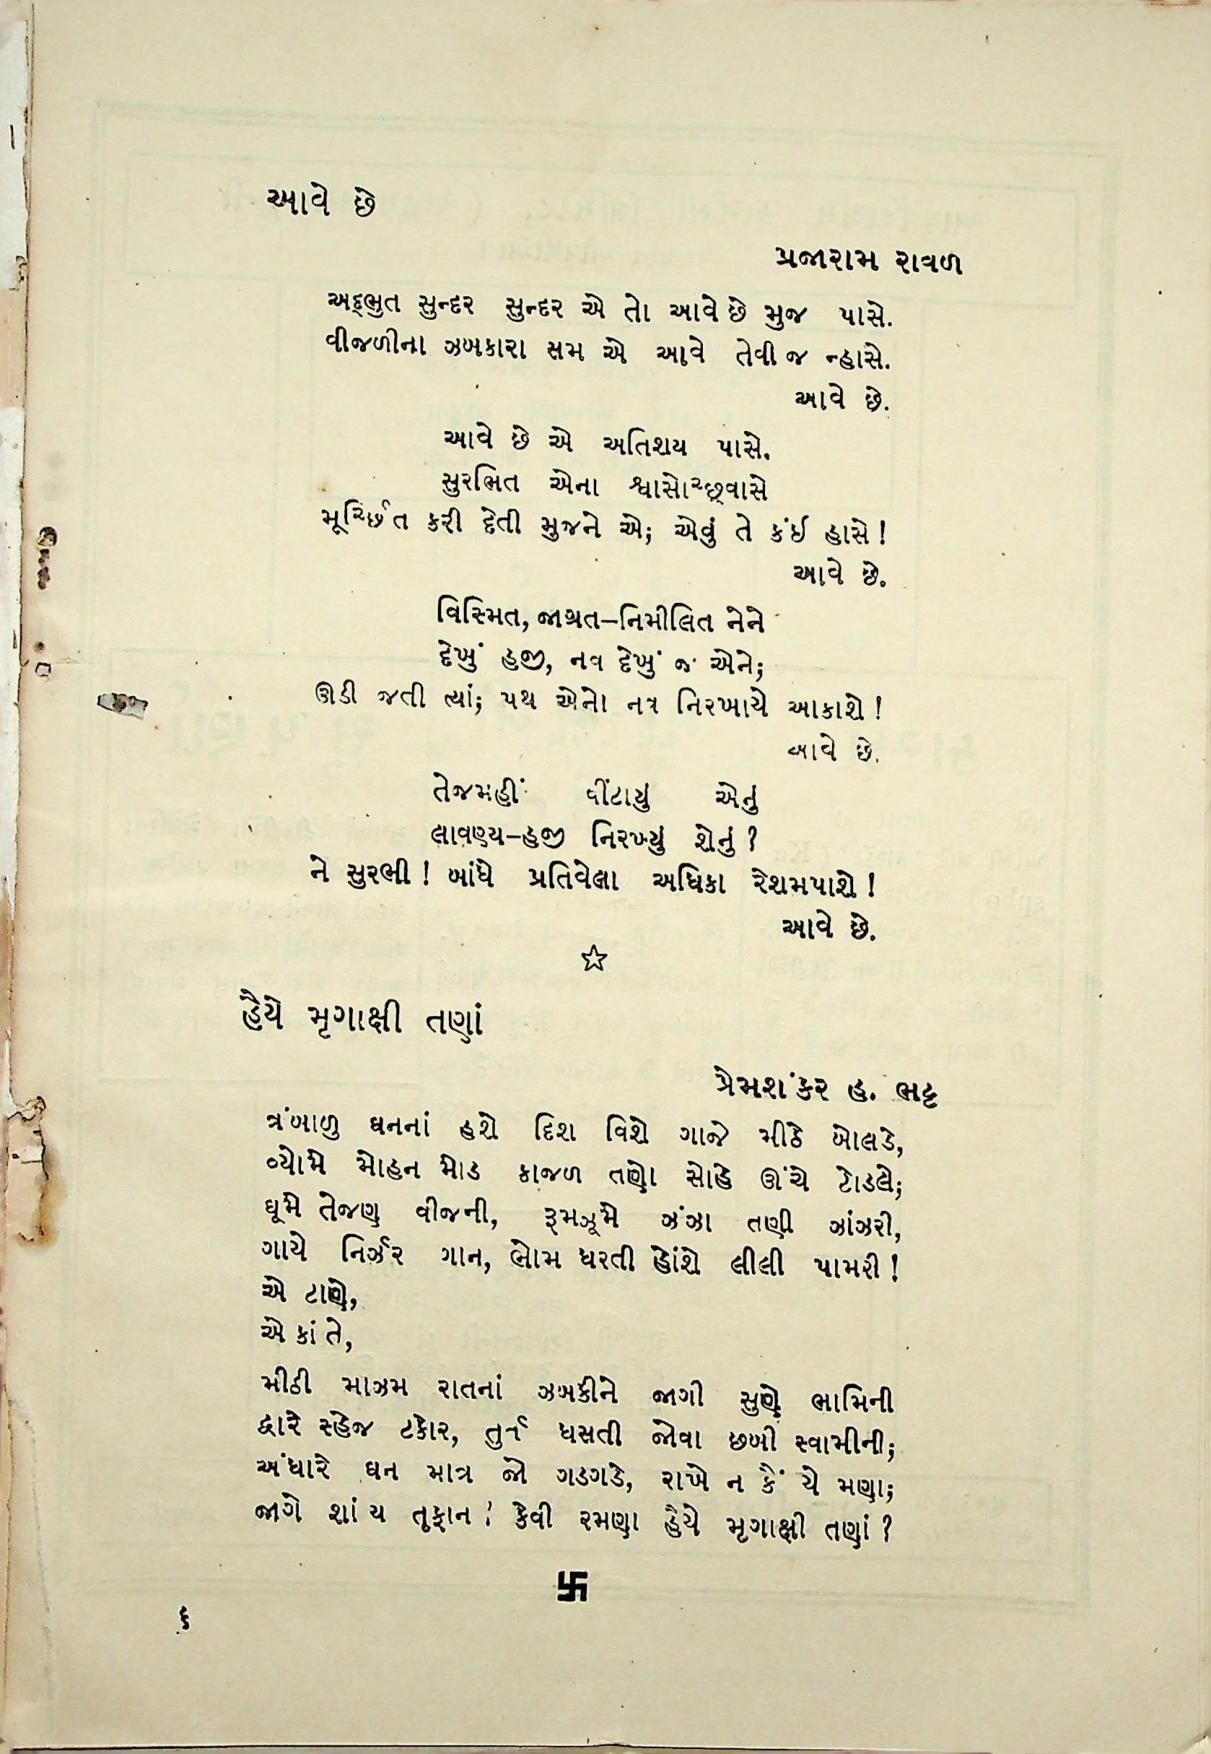 આવે છે
પ્રજારામ રાવળ
અદ્ભુત સુન્દર સુન્દર એ તો આવે છે મુજ પાસે.
વીજળીના ઝબકારા સમ એ આવે તેવી જ ન્હાસે.
આવે છે.
આવે છે એ અતિશય પાસે.
સુરભિત એના શ્વાસોચ્છ્વાસે
મૂર્ચ્છિત કરી દેતી મુજને એ; એવું તે કંઈ હાસે!
આવે છે.
વિસ્મિત, જાગ્રત–નિમીલિત નેને
દેખું હજી, નવ દેખું જ એને;
ઊડી જતી ત્યાં; પથ એનો નવ નિરખાયે આકાશે!
આવે છે.
તેજમહીં વીંટાયુ એનું
લાવણ્ય–હજી નિરખ્યું શેનું?
ને સુરભી! બાંધે પ્રતિવેલા અધિકા રેશમપાશે!
આવે છે.
☆
હૈયે મૃગાક્ષી તણાં
પ્રેમશંકર હ. ભટ્ટ
ત્રંબાળુ ઘનનાં હશે દિશ વિશે ગાજે મીઠે બોલડે,
વ્યોમે મોહન મોડ કાજળ તણો સોહે ઊંચે ટોડલે;
ઘૂમે તેજણ વીજની, રૂમઝૂમે ઝંઝા તણી ઝાંઝરી,
ગાયે નિર્ઝર ગાન, ભોમ ધરતી હોંશે લીલી પામરી!
એ ટાણે,
એકાંતે,
મીઠી માઝમ રાતનાં ઝબકીને જાગી સુણે ભામિની
દ્વારે સ્હેજ ટકોર, તુર્ત ધસતી જોવા છબી સ્વામીની;
અંધારે ઘન માત્ર જો ગડગડે, રાખે ન કૈં યે મણા;
જાગે શાંય તૂફાન! કેવી રમણા હૈયે મૃગાક્ષી તણાં?
卐
૬